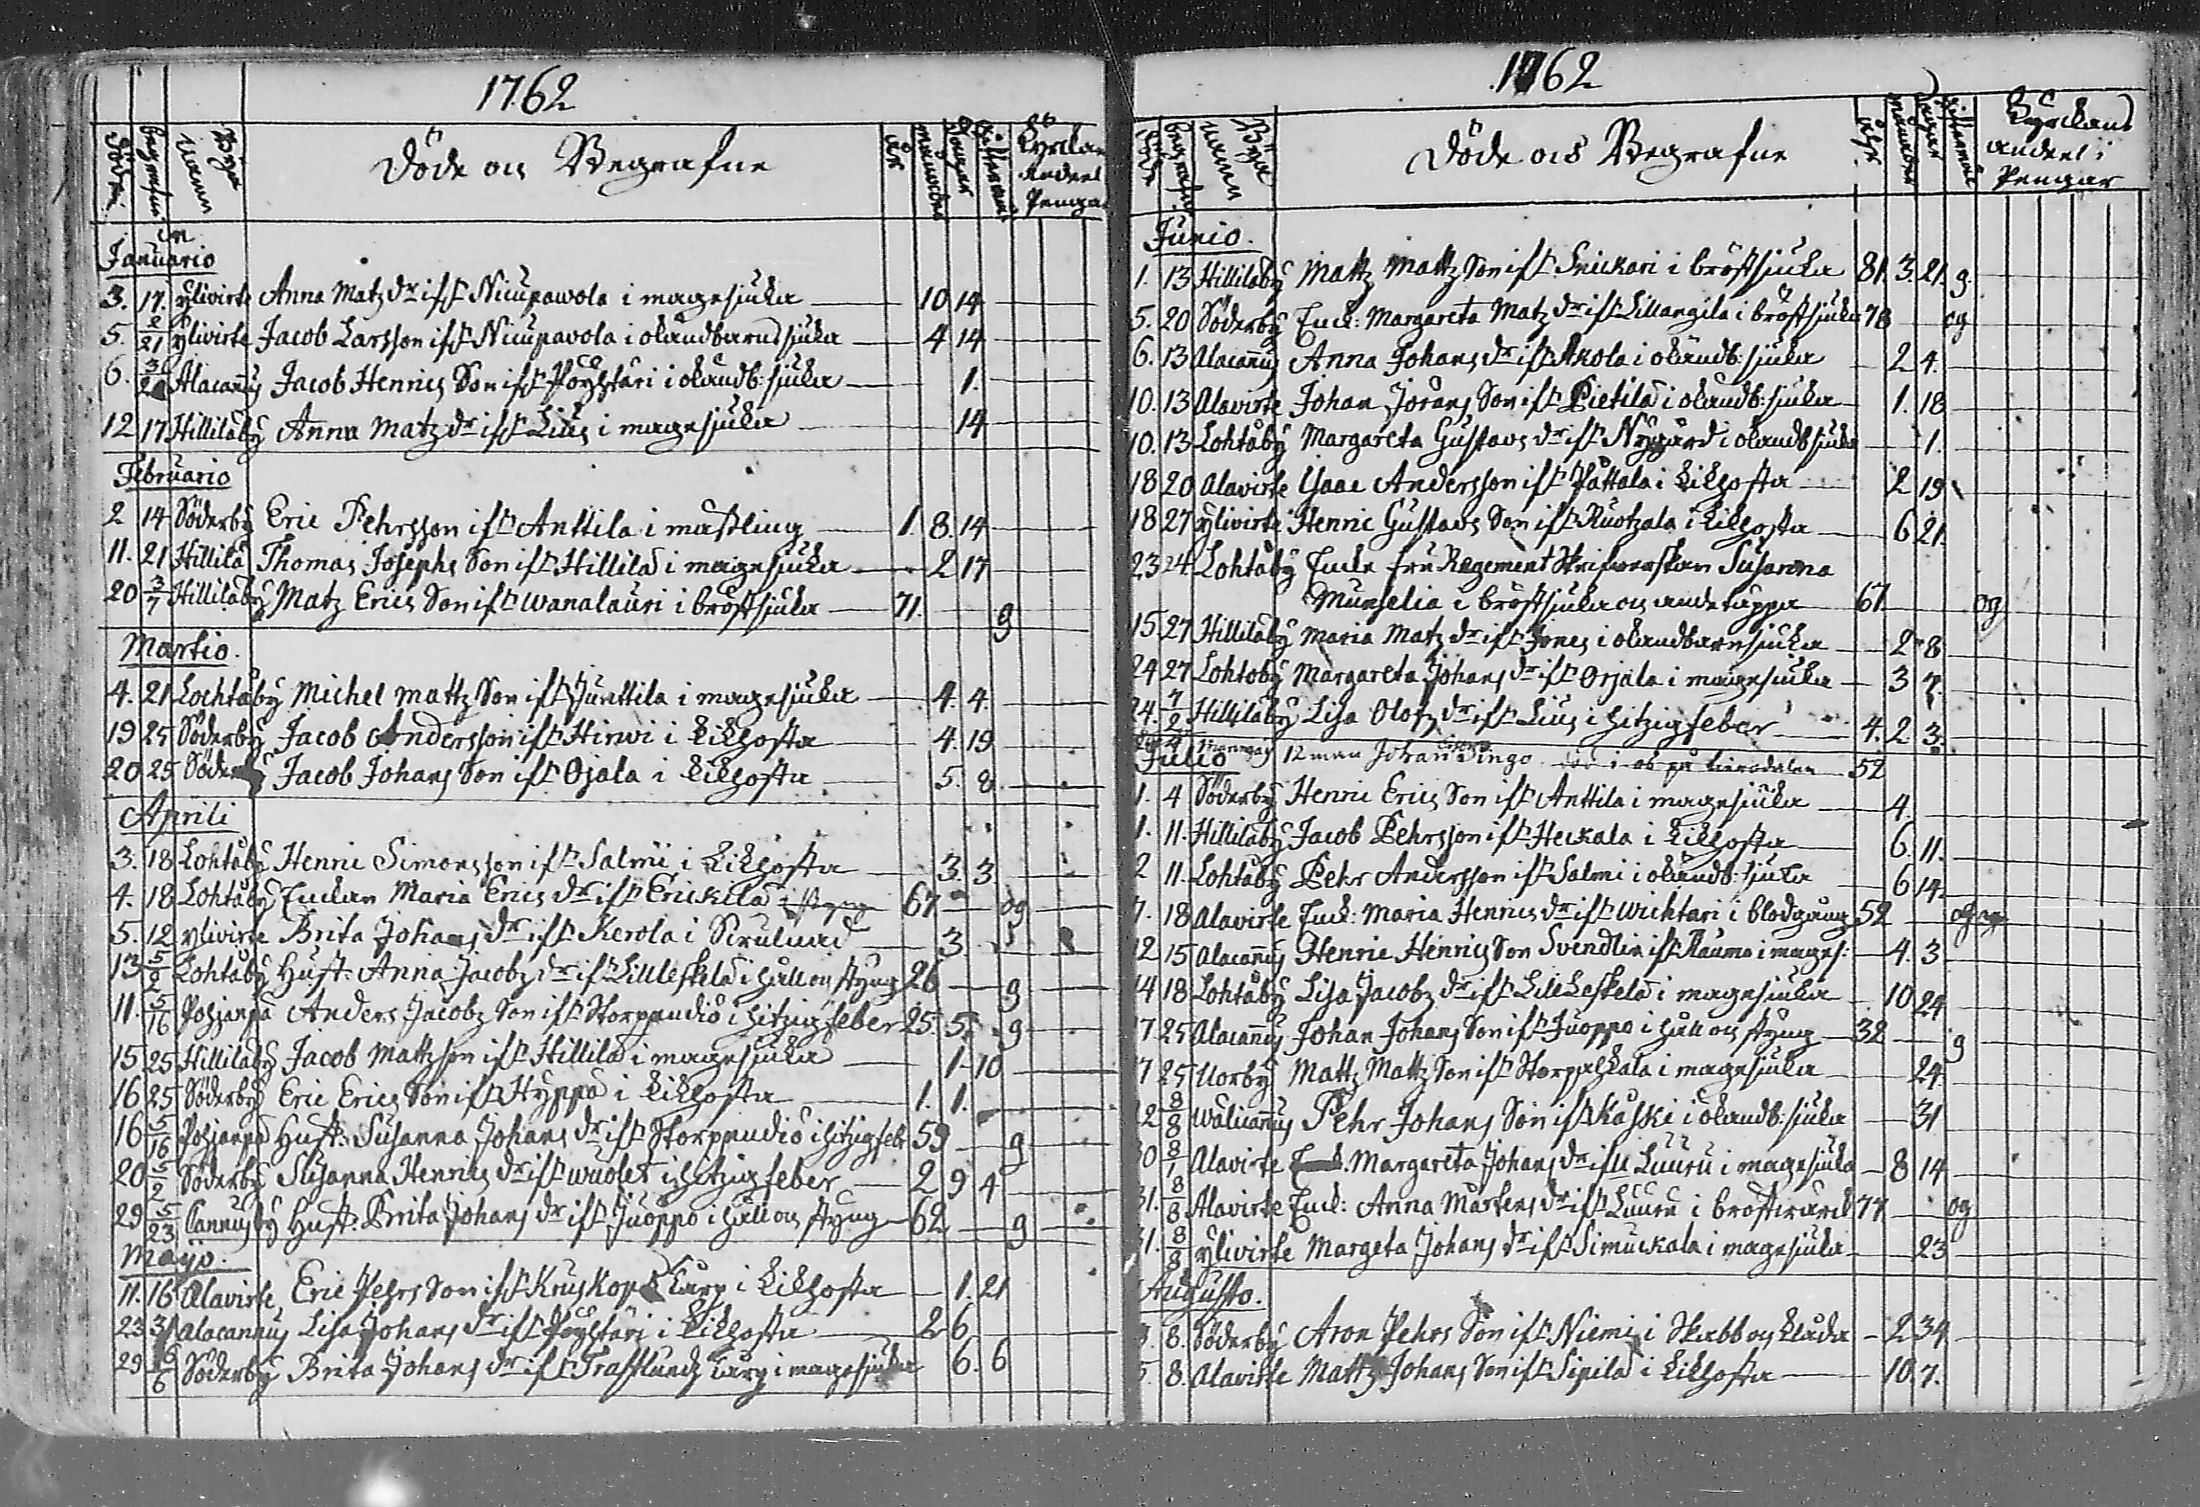 1762
Döde
begrafne
Bya Namn
Döde och Begrafne
år
månader
dagar
gifterm
Kyrckans Andeel Pengar
in Januario
3. 17. ylivirke Anna Matz dr ifr Niiupawola i magesjuka 10 14
5. 2/21 ylivirke Jacob Larsson ifr Niiupavola i okändbarnssjuka 4 14
6. 3/20 Alacannus Jacob Henrics Son ifr Pöyhtäri i okändb: sjuka 1.
12 17 Hillilaby Anna Matz dr ifr Lius i magesjuka 14
Februario
2 14 Söderby Eric Pehrsson ifr Anttila i mässling 1. 8. 14
11. 21 Hillilä Thomas Josephs Son ifr Hillilä i magesjuka 2 17
20 3/7 Hillilaby Matz Erics Son ifr wanalauri i bröstsjuka 71. g
Martio.
4. 21 Lochtaby Michel Mattz Son ifr Junttila i magesjuka 4. 4.
19 25 Söderby Jacob Andersson ifr Hirwi i Kikhosta 4. 19
20 25 Söderby Jacob Johans Son ifr Ojala i Kikhosta 5. 8.
Aprili
3. 18 Lohtåby Henric Simonsson ifr Salmi i Kikhosta 3. 3
4. 18 Lohtåby Enckan Maria Erics dr ifr Erickilä i styng 67 og
5. 12 ylivirke Brita Johans dr ifr Kerola i 3.
13 5/2 Lohtåby Hust: Anna Jacobz dr ifr Lilleskela i håll och styng 26 g
11. 5/16 Pohjanpä Anders Jacobz Son ifr Storpendiö i hitzig feber 25. 5. g
15 25 Hillilaby Jacob Mattzson ifr Hillilä i magesjuka 1. 10
16 25 Söderby Eric Erics Son ifr Hyppä i Kikhosta 1. 1.
16 5/16 Pohjanpä Hust: Susanna Johans dr ifr Storpendiö i hitzig feb: 59 g
20 5/2 Söderby Susanna Henrics dr ifr wuolet i hitzig feber 2 9 4
29 5/23 Cannusby Hust: Brita Johans dr ifr Juoppo i håll och styng 62 g
Majo.
11. 16 Alavirke Eric Pehrs Son ifr Kruskops Tårp i Kikhosta 1. 21
23 31 alacannus Lisa Johans dr ifr Pöyhtäri i Kikhosta 2 6
29 6/6 Söderby Brita Johans dr ifr Trafflunds Tårp i magesjuka 6. 6
1762
begrafne
Namn
Byä
Döde och Begrafne
åhr
månader
dagar
Kyrckans andeel i Pengar
Junio.
1. 13 Hillilaby Mattz Mattz Son ifr Snickari i bröstsjuka 81. 3. 21. g.
5. 20 Söderby Enck: Margareta Matz dr ifr Lillangila i bröstsjuka 78 og
6. 13 Alacannus Anna Johans dr ifr Akola i okändb: sjuka 2 4.
10. 13 Alavirke Johan Jörans Son ifr Pietilä i okändb: sjuka 1. 18
10. 13 Lohtåby Margareta Gustavs dr ifr Nygård i okändb sjuka 1.
18 20 Alavirke Isaac Andersson ifr Pättala i Kikhosta 2 19
18 27 ylivirke Henric Gustavs Son ifr Ruotzala i Kikhosta 6 21.
23 24 Lohtåby Encke fru Regement Skrifwerskan Susanna
Munselia i bröstsjuka och andtäppa 67 og
15 27 Hillilaby Maria Matz dr ifr Jones i okändbarnsjuka 2 8
24 27 Lohtoby Margareta Johans dr ifr Orjala i magesjuka 3 7.
24. 7/2 Hillilaby Lisa Olofz dr ifr Lius i hitzig feber 4. 2 3
12 man Johan Pingo död i 52
Julio
1. 4 Söderby Henric Erics Son ifr Anttila i magesjuka 4.
1. 11. Hillilaby Jacob Pehrsson ifr Heckala i Kikhosta 6. 11.
2 11. Lohtåby Pehr Andersson ifr Salmi i okändb: sjuka 6 14
7. 18 Alavirke Enck: Maria Henrics dr ifr wichtari i blodgång 52
12 15 Alacannus Henric Henrics Son Svendlin ifr Rauma i mages: 4. 3
14 18 Lohtåby Lisa Jacobz dr ifr Lilleskela i magesjuka 10 24
17 25 Alacannus Johan Johans Son ifr Juoppo i håll och styng 32 g
7 25 Norby Mattz Mattz Son ifr Storpahkala i magesjuka 24
2 8/8 wälicannus Pehr Johans Son ifr Kåski i okändb: sjuka 31
30 8/1 Alavirke Margareta Johans dr ifr Luuru i magesjuka 8 14
31. 8/8 Alavirke Enck: Anna Mårtens dr ifr Luuru i bröstwärck 77 og
31. 8/8 ylivirke Margeta Johans dr ifr Simuckala i magesjuka 23
Augusto.
3. 8. Söderby Aron Pehrs Son ifr Niemi i Skabb och klåda 2 34
5. 8. Alavirke Mattz Johans Son ifr Sipilä i Kikhosta 10. 7.